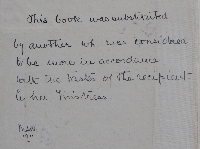 This book was substituted
by another wh was considered
to be more in accordance
with the tastes of the recipient
by her Mistress